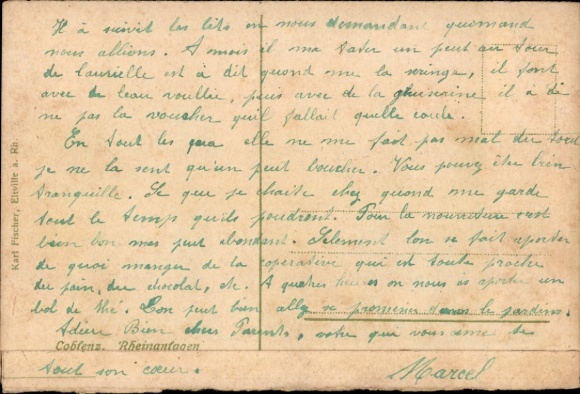 Il à suivit les lits en nous demandant quomand
nous allions. A mois il ma tater un peut au tour
de l'aurielle est à dit quand me la seringe, il font
avec de leau roullie, puis avec de la gluiserine il à di
ne pas la voucher qu'il fallait quelle coule.
En tout les qua elle ne me fait pas mal du tout
je ne la sent qu'un peut boucher. Vous pouvez être bien
tranquille. Se que je chaite chez quond me garde
tout le temp qu'ils voudront. Pour la nourriture c'est
bien bon mes peut abondant. Selement lon se fait aporter
de quoi manger de la coperative qui est toute proche
du pain, du chocolat, etc. A quatres heures on nous as aporter un
bol de thé. L'on peut bien aller se promener dans le jardins.
Adieu Bien chers Parents, votre qui vous aime de
tout son cœur. Marcel
Coblenz. Rheinanlagen
Karl Fischer, Eltville a. Rh.